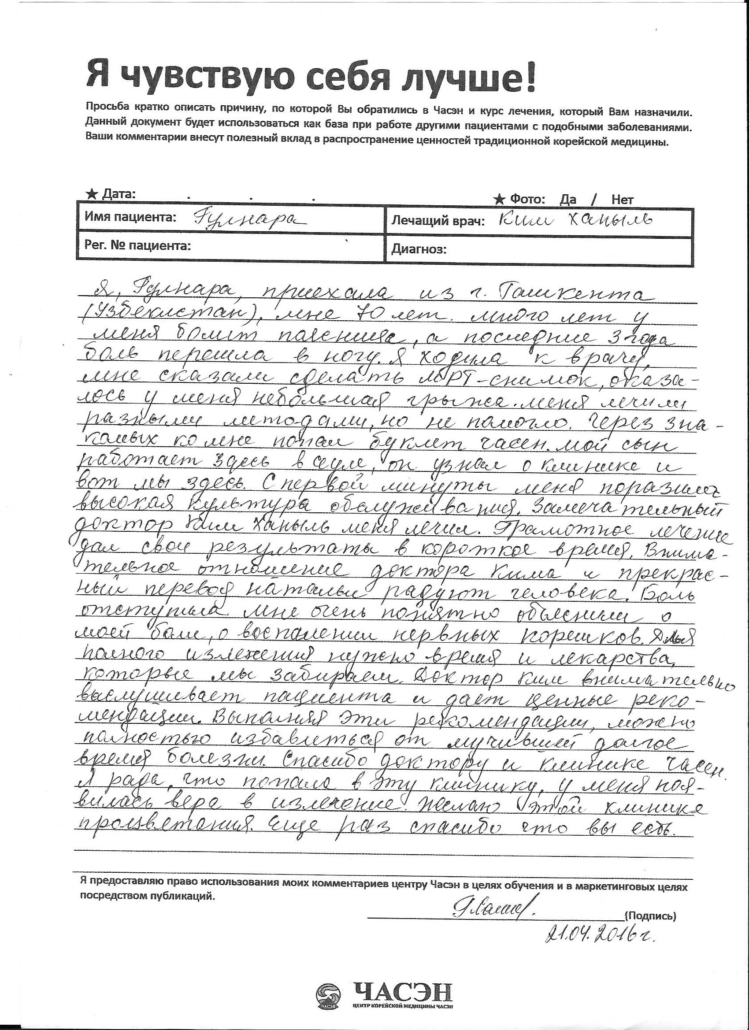 Я чувствую себя лучше!
Просьба кратко описать причину, по которой Вы обратились в Часэн и курс лечения, который Вам назначили.
Данный документ будет использоваться как база при работе другими пациентами с подобными заболеваниями.
Ваши комментарии внесут полезный вклад в распространение ценностей традиционной корейской медицины.
★ Дата: . . . ★ Фото: Да / Нет
Имя пациента: Гулнара Лечащий врач: Ким Ханыль
Рег. № пациента: Диагноз:
Я, Гулнара, приехала из г. Ташкента
(Узбекистан), мне 70 лет. много лет у
меня болит поясница, а последние 3 года
боль перешла в ногу. Я ходила к врачу,
мне сказали сделать МРТ-снимок, оказа-
лось у меня небольшая грыжа. меня лечили
разными методами, но не помогло. Через зна-
комых ко мне попал буклет часен. мой сын
работает здесь в сеуле, он узнал о клинике и
вот мы здесь. С первой минуты меня поразила
высокая культура обслуживания. Замечательный
доктор Ким Ханыль меня лечил. Грамотное лечение
дал свои результаты в короткое время. Внима-
тельное отношение доктора Кима и прекрас-
ный перевод натальи радуют человека. Боль
отступила. мне очень понятно объяснили о
моей боли, о воспалении нервных корешков. Для
полного излечения нужно время и лекарства,
которые мы забираем. Доктор Ким внимательно
выслушивает пациента и даёт ценные реко-
мендации. Выполняя эти рекомендации, можно
полностью избавиться от мучившей долгое
время болезни. Спасибо доктору и клинике Часен.
Я рада, что попала в эту клинику, у меня поя-
вилась вера в излечение. желаю этой клинике
процветания. Еще раз спасибо что вы есть.
Я предоставляю право использования моих комментариев центру Часэн в целях обучения и в маркетинговых целях
посредством публикаций.
(Подпись)
21.04.2016г.
ЧАСЭН
ЦЕНТР КОРЕЙСКОЙ МЕДИЦИНЫ ЧАСЭН